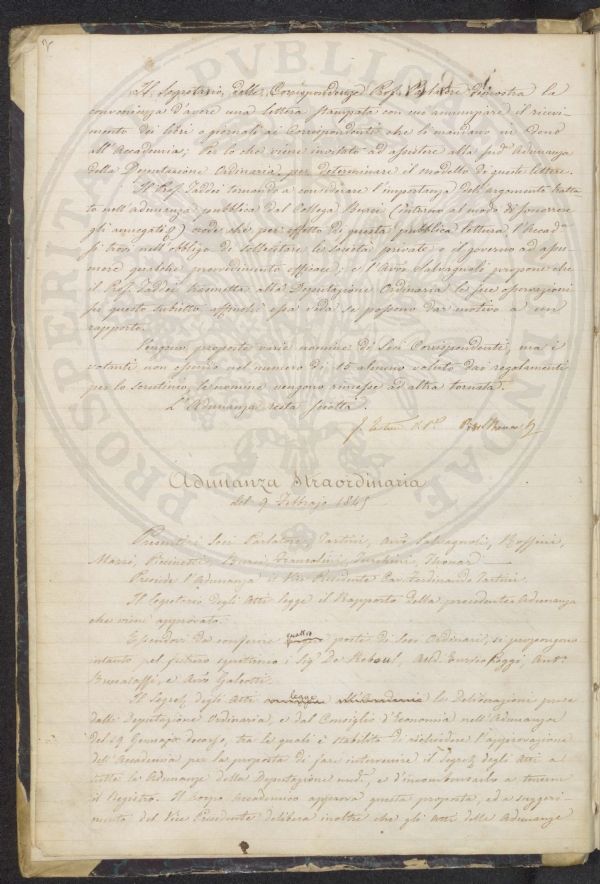 Il Segretario delle Corrispondenze Prof. Parlatore dimostra la
convenienza d'avere una lettera stampata con cui annunziare il ricevi-
mento dei libri o giornali ai Corrispondenti che li mandano in dono
all'Accademia; Per lo che viene invitato ad assistere alla pudª Adunanza
della Deputazione Ordinaria, per determinare il modello di queste lettere.
Il Prof. Taddei tornando a considerare l'importanza dell'argomento tratta-
to nell'adunanza pubblica dal Collega Burci (intorno al modo di soccorrere
gli annegati) crede che per effetto di questa pubblica lettura l'Accadª
si trovi nell'obbligo di sollecitare le società private o il governo ad assu-
mere qualche provvedimento efficace; e l'Avvo Salvagnoli propone che
il Prof. Taddei trasmetta alla Deputazione Ordinaria le sue osservazioni
su questo subietto affinchè essa veda se possono dar motivo a un
rapporto.
Vengono proposte varie nomine di Soci Corrispondenti, ma i
votanti non essendo nel numero di 15 almeno voluto dai regolamenti
per lo scrutinio, le nomine vengono rimesse ad altra tornata.
L'Adunanza resta sciolta.
Adunanza Straordinaria
del 9 Febbrajo 1845
Presenti i Soci Parlatore, Tartini, Avvo Salvagnoli, Rossini,
Marzi, Piccinetti, Burci, Franceschi, Turchini, Thouar
Presiede l'Adunanza il Vice Presidente Cav. Ferdinando Tartini
Il Segretario degli Atti legge il Rapporto della precedente Adunanza
che vien approvato.
Essendovi da conferire quattro posti di Soci Ordinari, si propongono
intanto pel futuro squittinio i Sigri De Reboul, Avvo Enrico Poggi, Anto
Brucalassi, e Avvo Galeotti.
Il Segreto degli Atti legge le Deliberazioni prese
dalla Deputazione Ordinaria, e dal Consiglio d'Economia nell'Adunanza
del 29 Gennajo decorso, tra le quali è stabilito di richiedere l'approvazione
dell'Accademia per la proposta di fare intervenire il Segreto degli Atti a
tutte le Adunanze della Deputazione medª, e d'incombensarlo a tenerne
il Registro. Il Corpo Accademico approva questa proposta, ed a suggeri-
mento del Vice Presidente delibera inoltre che gli Atti delle Adunanze